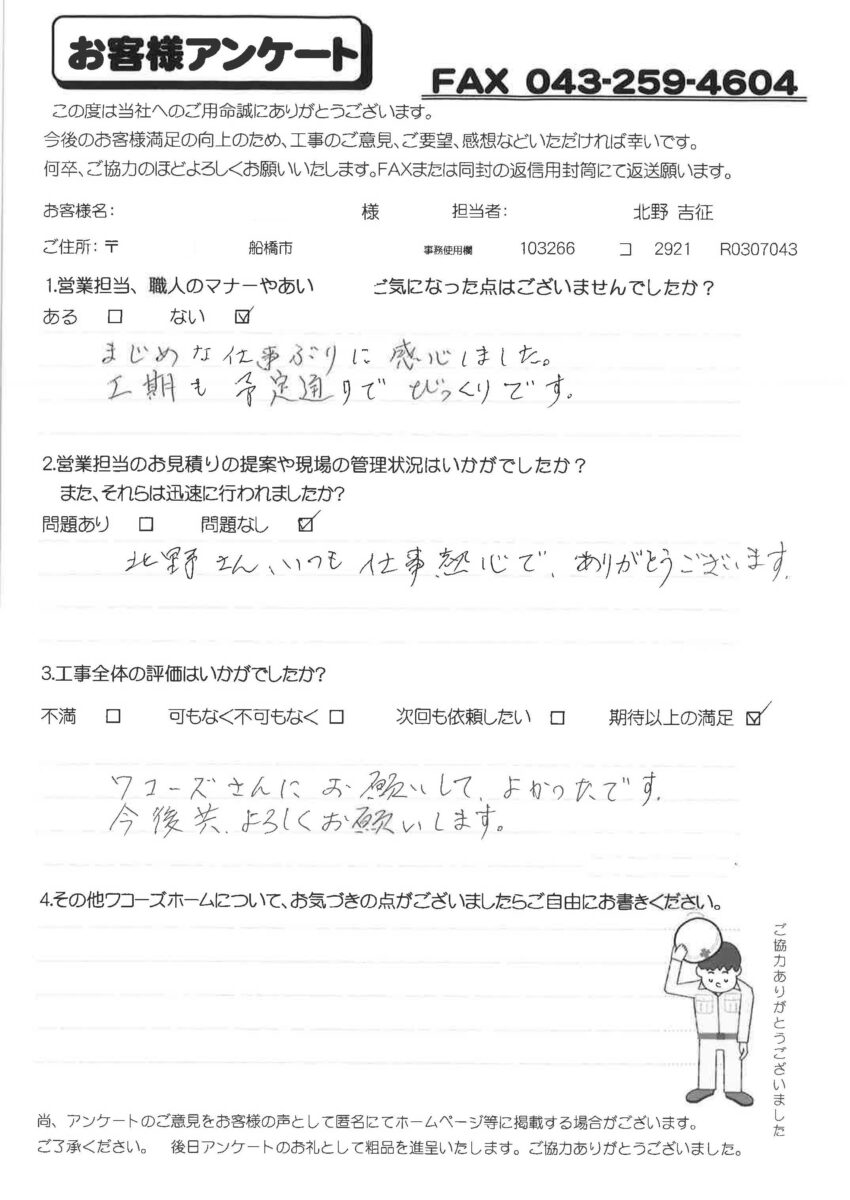 お客様アンケート
FAX 043-259-4604
この度は当社へのご用命誠にありがとうございます。
今後のお客様満足の向上のため、工事のご意見、ご要望、感想などいただければ幸いです。
何卒、ご協力のほどよろしくお願いいたします。FAXまたは同封の返信用封筒にて返送願います。
お客様名: 様 担当者: 北野 吉征
ご住所: 〒 船橋市 事務使用欄 103266 コ 2921 R0307043
1.営業担当、職人のマナーやあい ご気になった点はございませんでしたか？
ある □ ない ☑
まじめな仕事ぶりに感心しました。
工期も予定通りでびっくりです。
2.営業担当のお見積りの提案や現場の管理状況はいかがでしたか？
また、それらは迅速に行われましたか?
問題あり □ 問題なし ☑
北野さん、いつも仕事熱心で、ありがとうございます.
3.工事全体の評価はいかがでしたか?
不満 □ 可もなく不可もなく □ 次回も依頼したい □ 期待以上の満足 ☑
ワコーズさんにお願いして、よかったです.
今後共、よろしくお願いします。
4.その他ワコーズホームについて、お気づきの点がございましたらご自由にお書きください。
ご協力ありがとうございました
尚、アンケートのご意見をお客様の声として匿名にてホームページ等に掲載する場合がございます。
ご了承ください。 後日アンケートのお礼として粗品を進呈いたします。ご協力ありがとうございました。